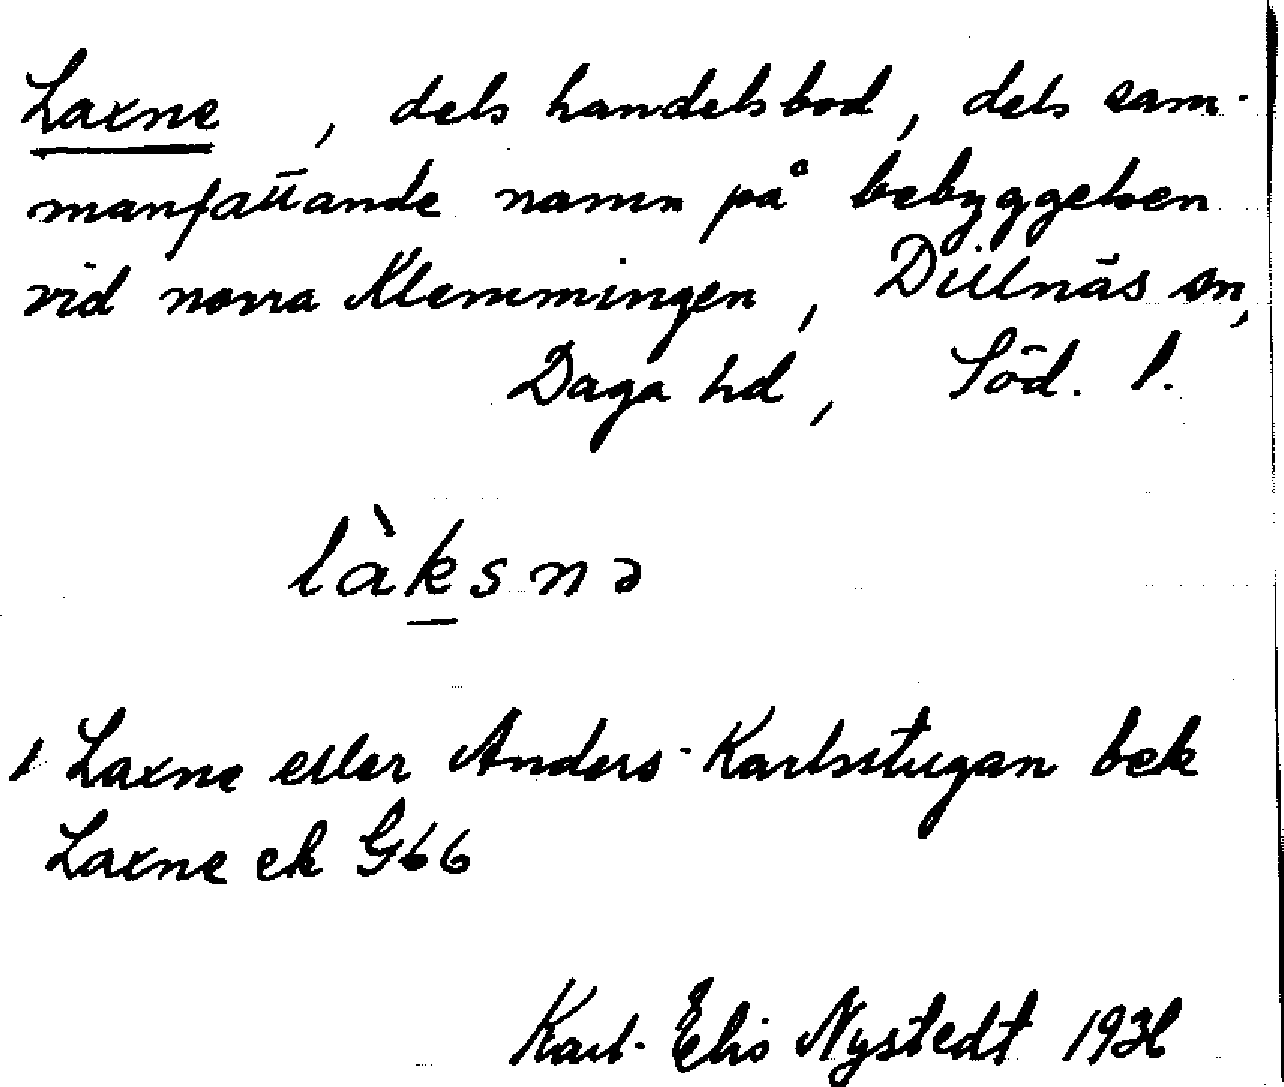 Laxne, dels handelsbod, dels sam-
manfattande namn på bebyggelsen
vid norra Klemmingen, Dillnäs sn,
Daga hd, Söd. l.
làksnə
1 Laxne eller Anders-Karlsstugan bek
Laxne ek G66
Karl-Elis Nystedt 1936